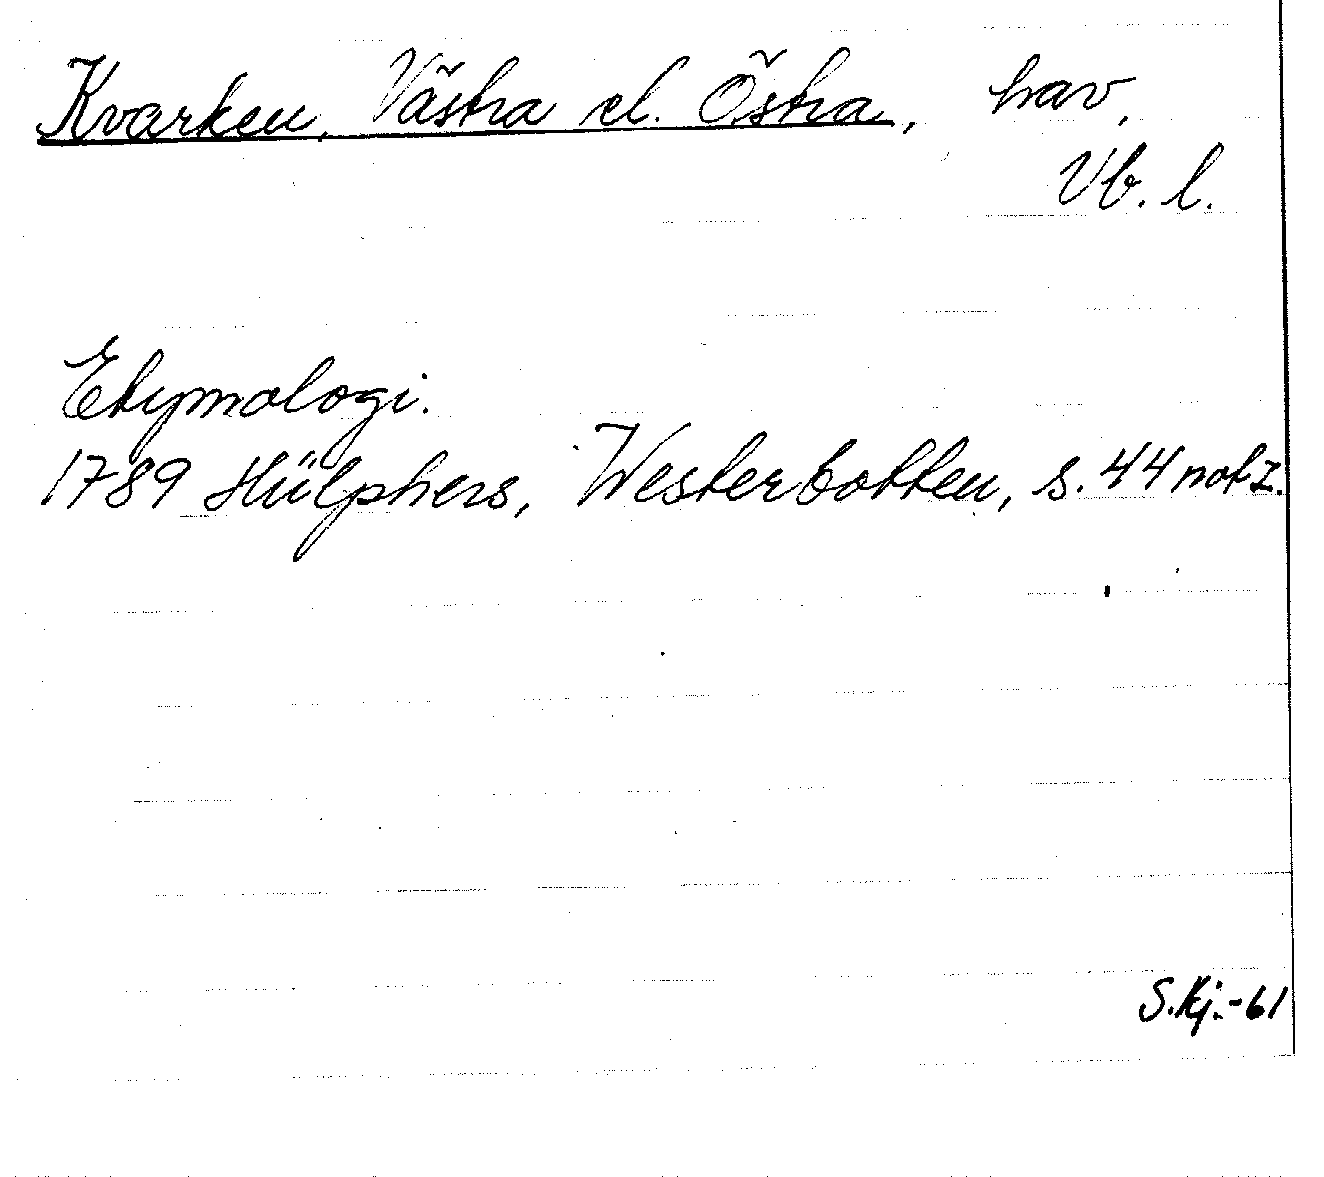 Kvarken, Västra el. Östra, hav,
Vb. l.
Etymologi.
1789 Hülphers, Westerbotten, s. 44 not z.
S.Kj.-61